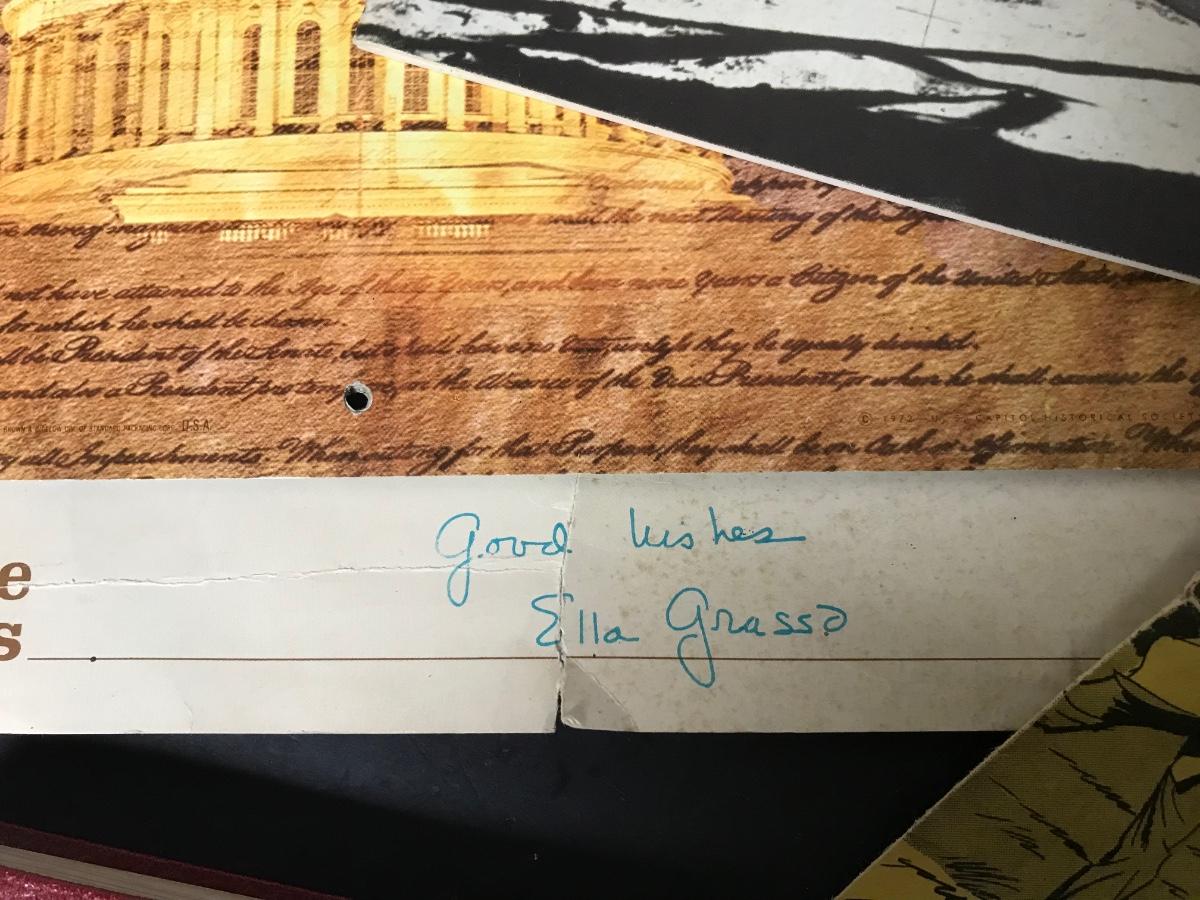 the next Meeting of the Legis
not have attained to the Age of thirty Years, and been nine Years a Citizen of the United States,
for which he shall be chosen.
ll be President of the Senate, but shall have no Vote, unless they be equally divided.
and also a President pro tempore, in the Absence of the Vice President, or when he shall exercise the
BROWN & BIGELOW DIV. OF STANDARD PACKAGING CORP. U.S.A.
© 1972 U.S. CAPITOL HISTORICAL SOCIETY
all Impeachments. When sitting for that Purpose, they shall be on Oath or Affirmation. When
Good Wishes
e
Ella Grasso
s